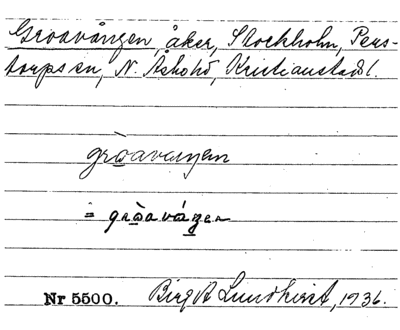 Groavången, åker, Stockholm, Pers-
torps sn, N. Åsbohd, Kristianstads l.
gròavaŋen
= gròaváŋen
Nr 5500. Birgit Lundkvist, 1936.